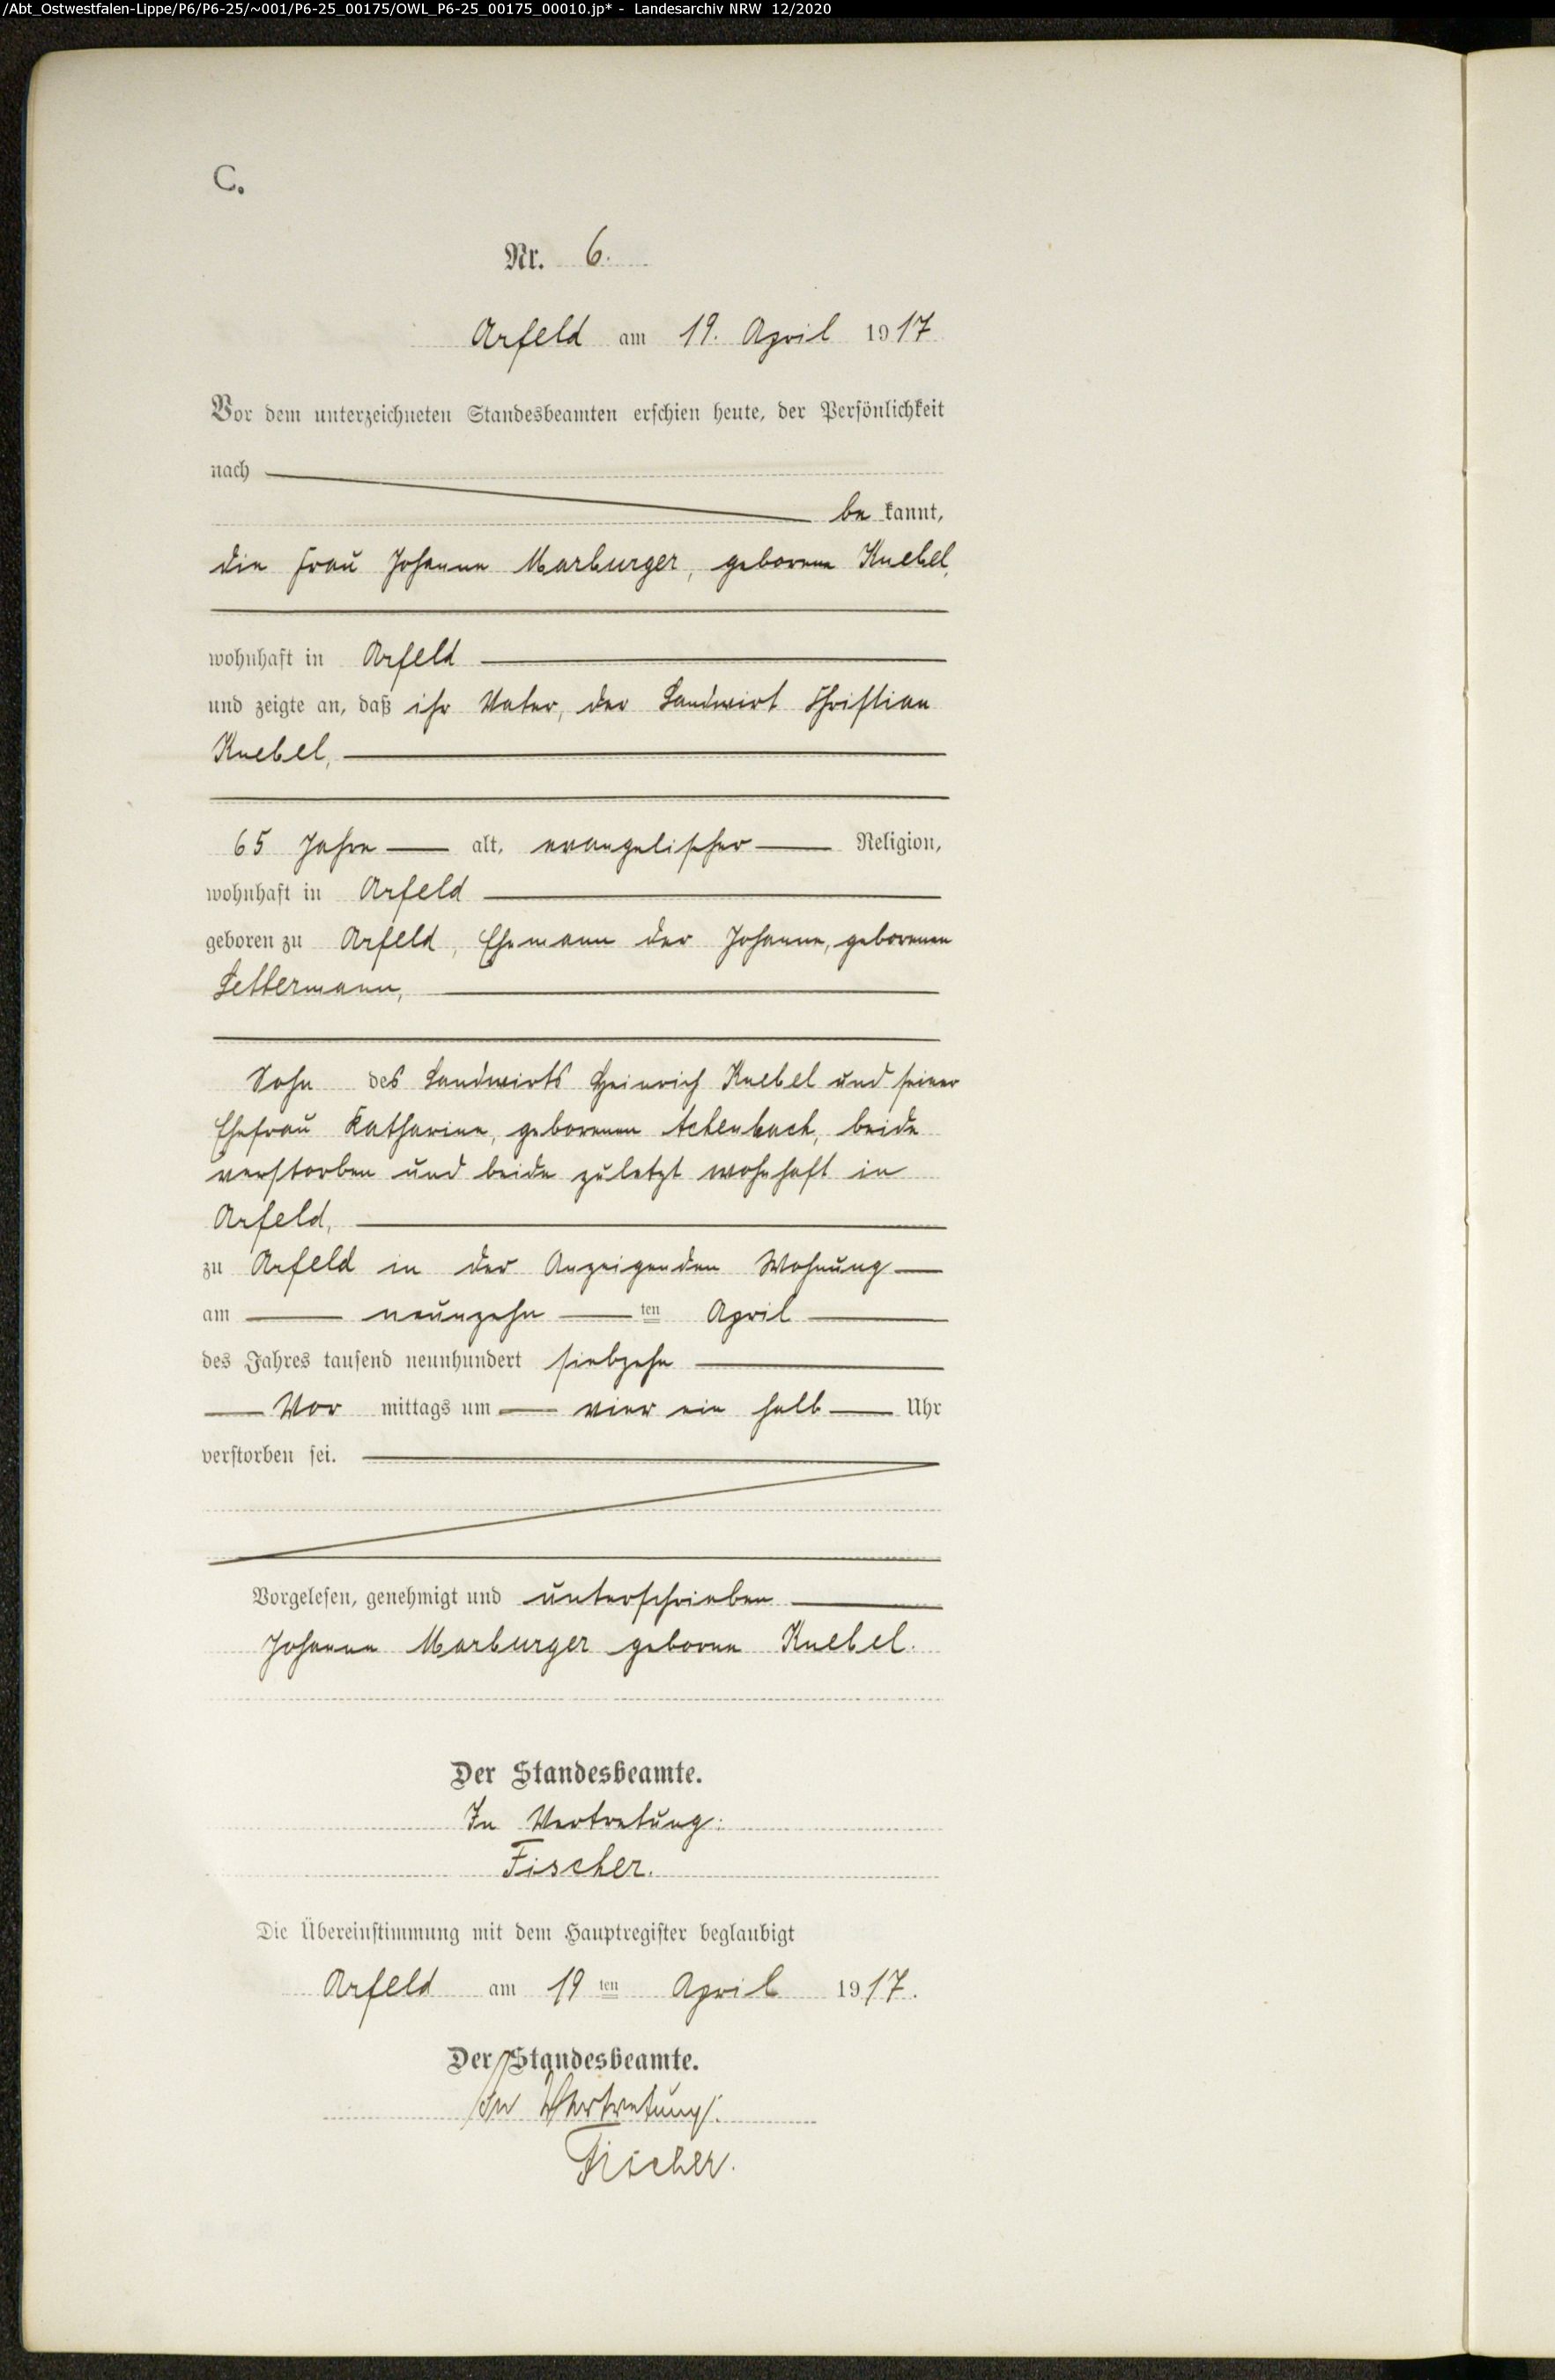 /Abt_Ostwestfalen-Lippe/P6/P6-25/~001/P6-25_00175/OWL_P6-25_00175_00010.jp* - Landesarchiv NRW 12/2020
C.
Nr. 6.
Arfeld am 19. April 1917
Vor dem unterzeichneten Standesbeamten erschien heute, der Persönlichkeit
nach
be kannt,
die Frau Johanne Marburger, geborene Knebel,
wohnhaft in Arfeld
und zeigte an, daß ihr Vater, der Landwirt Christian
Knebel,
65 Jahre alt, evangelischer Religion,
wohnhaft in Arfeld
geboren zu Arfeld, Ehemann der Johanne, geborenen
Lettermann,
Sohn des Landwirts Heinrich Knebel und seiner
Ehefrau Katharine, geborenen Achenbach, beide
verstorben und beide zuletzt wohnhaft in
Arfeld,
zu Arfeld in der Anzeigenden Wohnung
am neunzehn ten April
des Jahres tausend neunhundert siebzehn
Vor mittags um vier ein halb Uhr
verstorben sei.
Vorgelesen, genehmigt und unterschrieben
Johanne Marburger geborne Knebel.
Der Standesbeamte.
In Vertretung:
Fischer.
Die Übereinstimmung mit dem Hauptregister beglaubigt
Arfeld am 19 ten April 1917.
Der Standesbeamte.
In Vertretung:
Fischer.